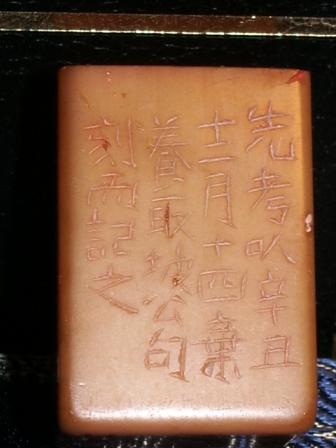 先考㕥辛丑
十二月十四棄
養取坡公句
刻而記之